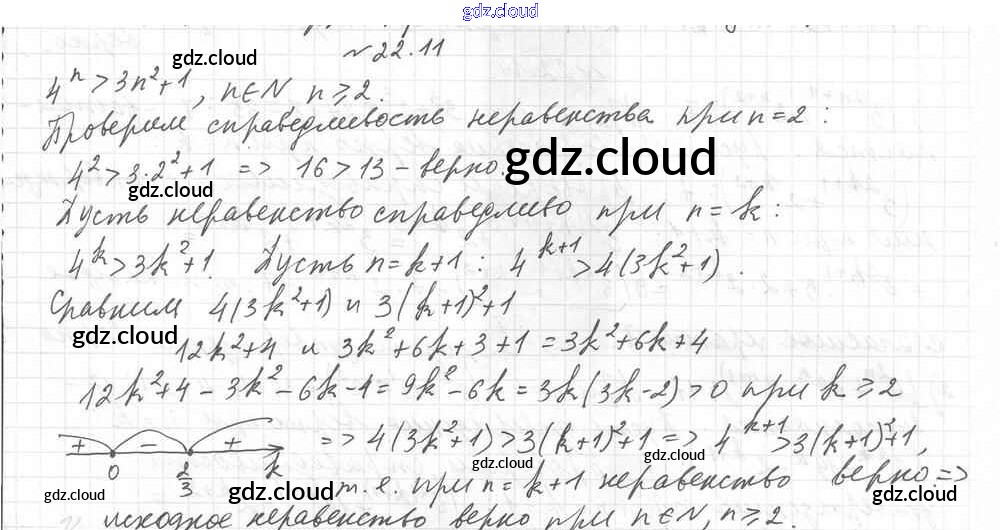 gdz.cloud
№22.11
gdz.cloud
4ⁿ > 3n² + 1, n ∈ N n ⩾ 2.
gdz.cloud
Проверим справедливость неравенства при n = 2 :
4² > 3·2² + 1 => 16 > 13 – верно.
gdz.cloud
gdz.cloud
Пусть неравенство справедливо при n = k :
4ᵏ > 3k² + 1. Пусть n = k + 1 : 4ᵏ⁺¹ > 4(3k² + 1).
Сравним 4(3k² + 1) и 3(k + 1)² + 1
gdz.cloud
12k² + 4 и 3k² + 6k + 3 + 1 = 3k² + 6k + 4
12k² + 4 – 3k² – 6k – 4 = 9k² – 6k = 3k(3k – 2) > 0 при k ⩾ 2
+ – + => 4(3k² + 1) > 3(k + 1)² + 1 => 4ᵏ⁺¹ > 3(k + 1)² + 1,
gdz.cloud
gdz.cloud
gdz.cloud
0 2/3 k
т.е. при n = k + 1 неравенство верно =>
gdz.cloud
gdz.cloud
gdz.cloud
gdz.cloud
исходное неравенство верно при n ∈ N, n ⩾ 2.